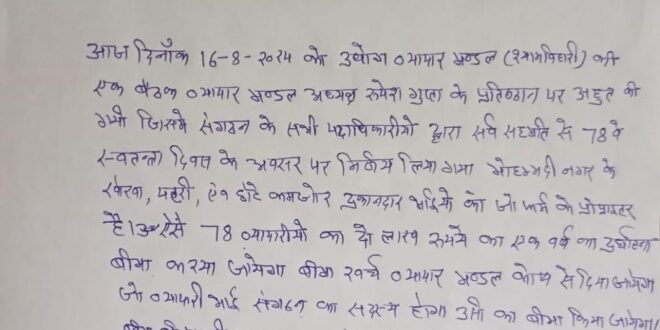 आज दिनाँक 16-8-2024 को उधोग व्यापार मण्डल (श्यामबिहारी) की
एक बैठक व्यापार मण्डल अध्यक्ष रुपेश गुप्ता के प्रतिष्ठान पर आहुत की
गयी जिसमे संगठन के सभी पदाधिकारीयो द्वारा सर्व सहमति से 78 वे
स्वतन्ता दिवस के अवसर पर निर्णय लिया गया मोहम्मदी नगर के
पटरी, एंव छोटे कमजोर दुकानदार भाईयो का जो फर्म के प्रोपराइटर
है। ऐसे 78 व्यापारीयो का दो लाख रुपये का एक वर्ष का दुर्घटना
बीमा कराया जायेगा बीमा खर्च व्यापार मण्डल कोष से दिया जायेगा
जो व्यापारी भाई संगठन का सदस्य होगा उसी का बीमा किया जायेगा।